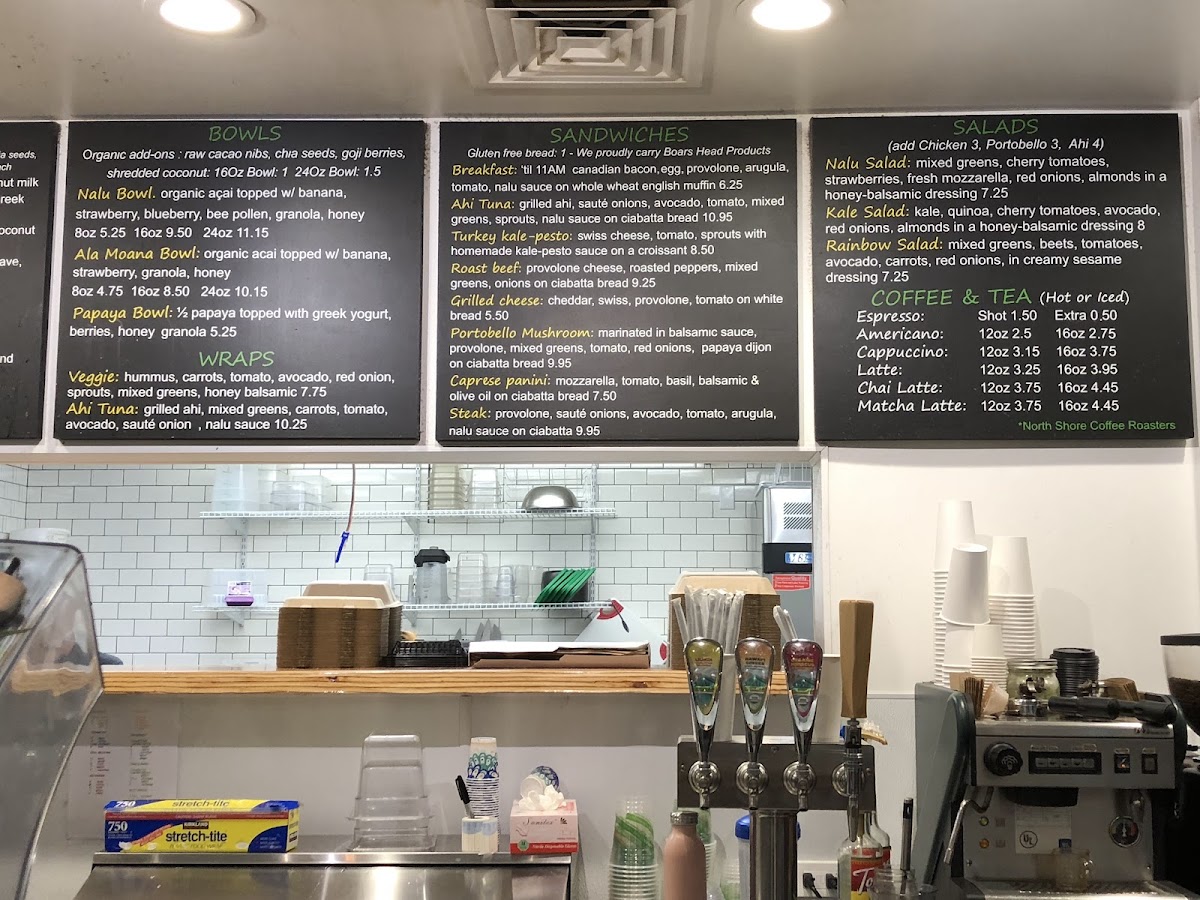 ia seeds,
nut milk
reek
oconut
ave,
nd
BOWLS
Organic add-ons : raw cacao nibs, chia seeds, goji berries,
shredded coconut: 16Oz Bowl: 1 24Oz Bowl: 1.5
Nalu Bowl. organic açai topped w/ banana,
strawberry, blueberry, bee pollen, granola, honey
8oz 5.25 16oz 9.50 24oz 11.15
Ala Moana Bowl: organic acai topped w/ banana,
strawberry, granola, honey
8oz 4.75 16oz 8.50 24oz 10.15
Papaya Bowl: ½ papaya topped with greek yogurt,
berries, honey granola 5.25
WRAPS
Veggie: hummus, carrots, tomato, avocado, red onion,
sprouts, mixed greens, honey balsamic 7.75
Ahi Tuna: grilled ahi, mixed greens, carrots, tomato,
avocado, sauté onion , nalu sauce 10.25
SANDWICHES
Gluten free bread: 1 - We proudly carry Boars Head Products
Breakfast: 'til 11AM canadian bacon,egg, provolone, arugula,
tomato, nalu sauce on whole wheat english muffin 6.25
Ahi Tuna: grilled ahi, sauté onions, avocado, tomato, mixed
greens, sprouts, nalu sauce on ciabatta bread 10.95
Turkey kale-pesto: swiss cheese, tomato, sprouts with
homemade kale-pesto sauce on a croissant 8.50
Roast beef: provolone cheese, roasted peppers, mixed
greens, onions on ciabatta bread 9.25
Grilled cheese: cheddar, swiss, provolone, tomato on white
bread 5.50
Portobello Mushroom: marinated in balsamic sauce,
provolone, mixed greens, tomato, red onions, papaya dijon
on ciabatta bread 9.95
Caprese panini: mozzarella, tomato, basil, balsamic &
olive oil on ciabatta bread 7.50
Steak: provolone, sauté onions, avocado, tomato, arugula,
nalu sauce on ciabatta 9.95
SALADS
(add Chicken 3, Portobello 3, Ahi 4)
Nalu Salad: mixed greens, cherry tomatoes,
strawberries, fresh mozzarella, red onions, almonds in a
honey-balsamic dressing 7.25
Kale Salad: kale, quinoa, cherry tomatoes, avocado,
red onions, almonds in a honey-balsamic dressing 8
Rainbow Salad: mixed greens, beets, tomatoes,
avocado, carrots, red onions, in creamy sesame
dressing 7.25
COFFEE & TEA (Hot or Iced)
Espresso: Shot 1.50 Extra 0.50
Americano: 12oz 2.5 16oz 2.75
Cappuccino: 12oz 3.15 16oz 3.75
Latte: 12oz 3.25 16oz 3.95
Chai Latte: 12oz 3.75 16oz 4.45
Matcha Latte: 12oz 3.75 16oz 4.45
*North Shore Coffee Roasters
750 stretch-tite
750 KIRKLAND
stretch-tite
UL